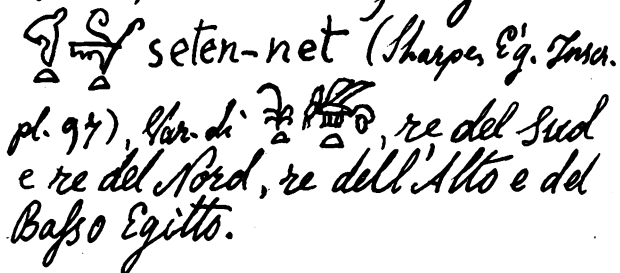 seten-net (Sharpe, Eg. Inscr.
pl. 97), Var. di , re del Sud
e re del Nord, re dell'Alto e del
Basso Egitto.